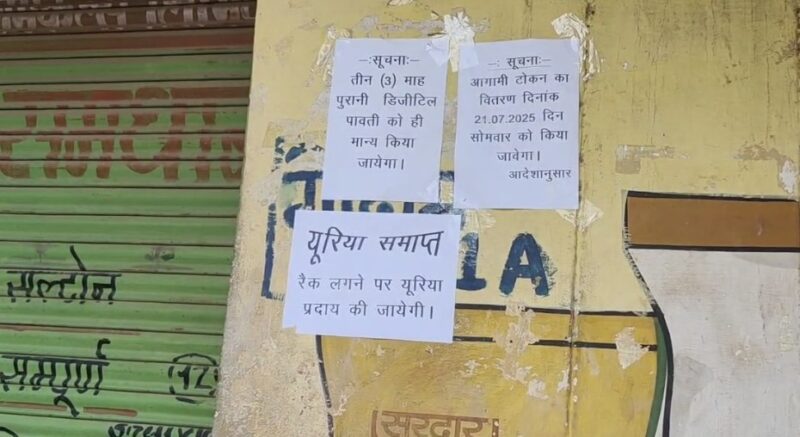 -:सूचना:-
तीन (3) माह
पुरानी डिजीटिल
पावती को ही
मान्य किया
जायेगा।
-: सूचना:-
आगामी टोकन का
वितरण दिनांक
21.07.2025 दिन
सोमवार को किया
जावेगा।
आदेशानुसार
यूरिया समाप्त
रैक लगने पर यूरिया
प्रदाय की जायेगी।
1A
सल्टोन
सम्पूर्ण
सरदार